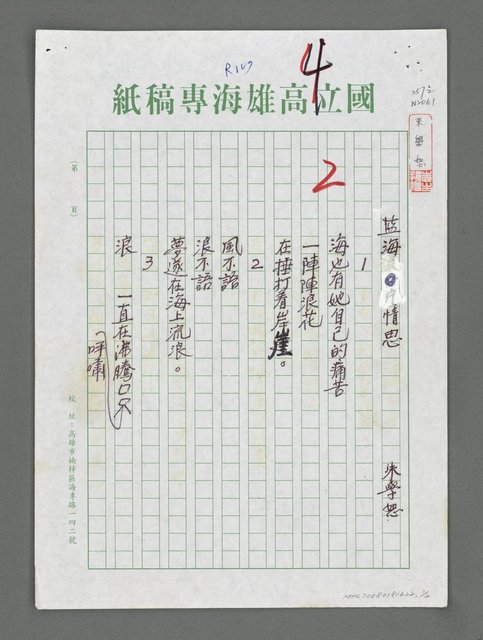 4
R127
國立高雄海專稿紙
257-2
N2061
朱學恕
2
（第　頁）
藍海的情思
朱學恕
1
海也有她自己的痛苦
一陣陣浪花
在捶打着岸崖。
2
風不語
浪不語
夢遂在海上流浪。
3
浪　一直在沸騰
呼嘯
校址：高雄市楠梓區海專路一四二號